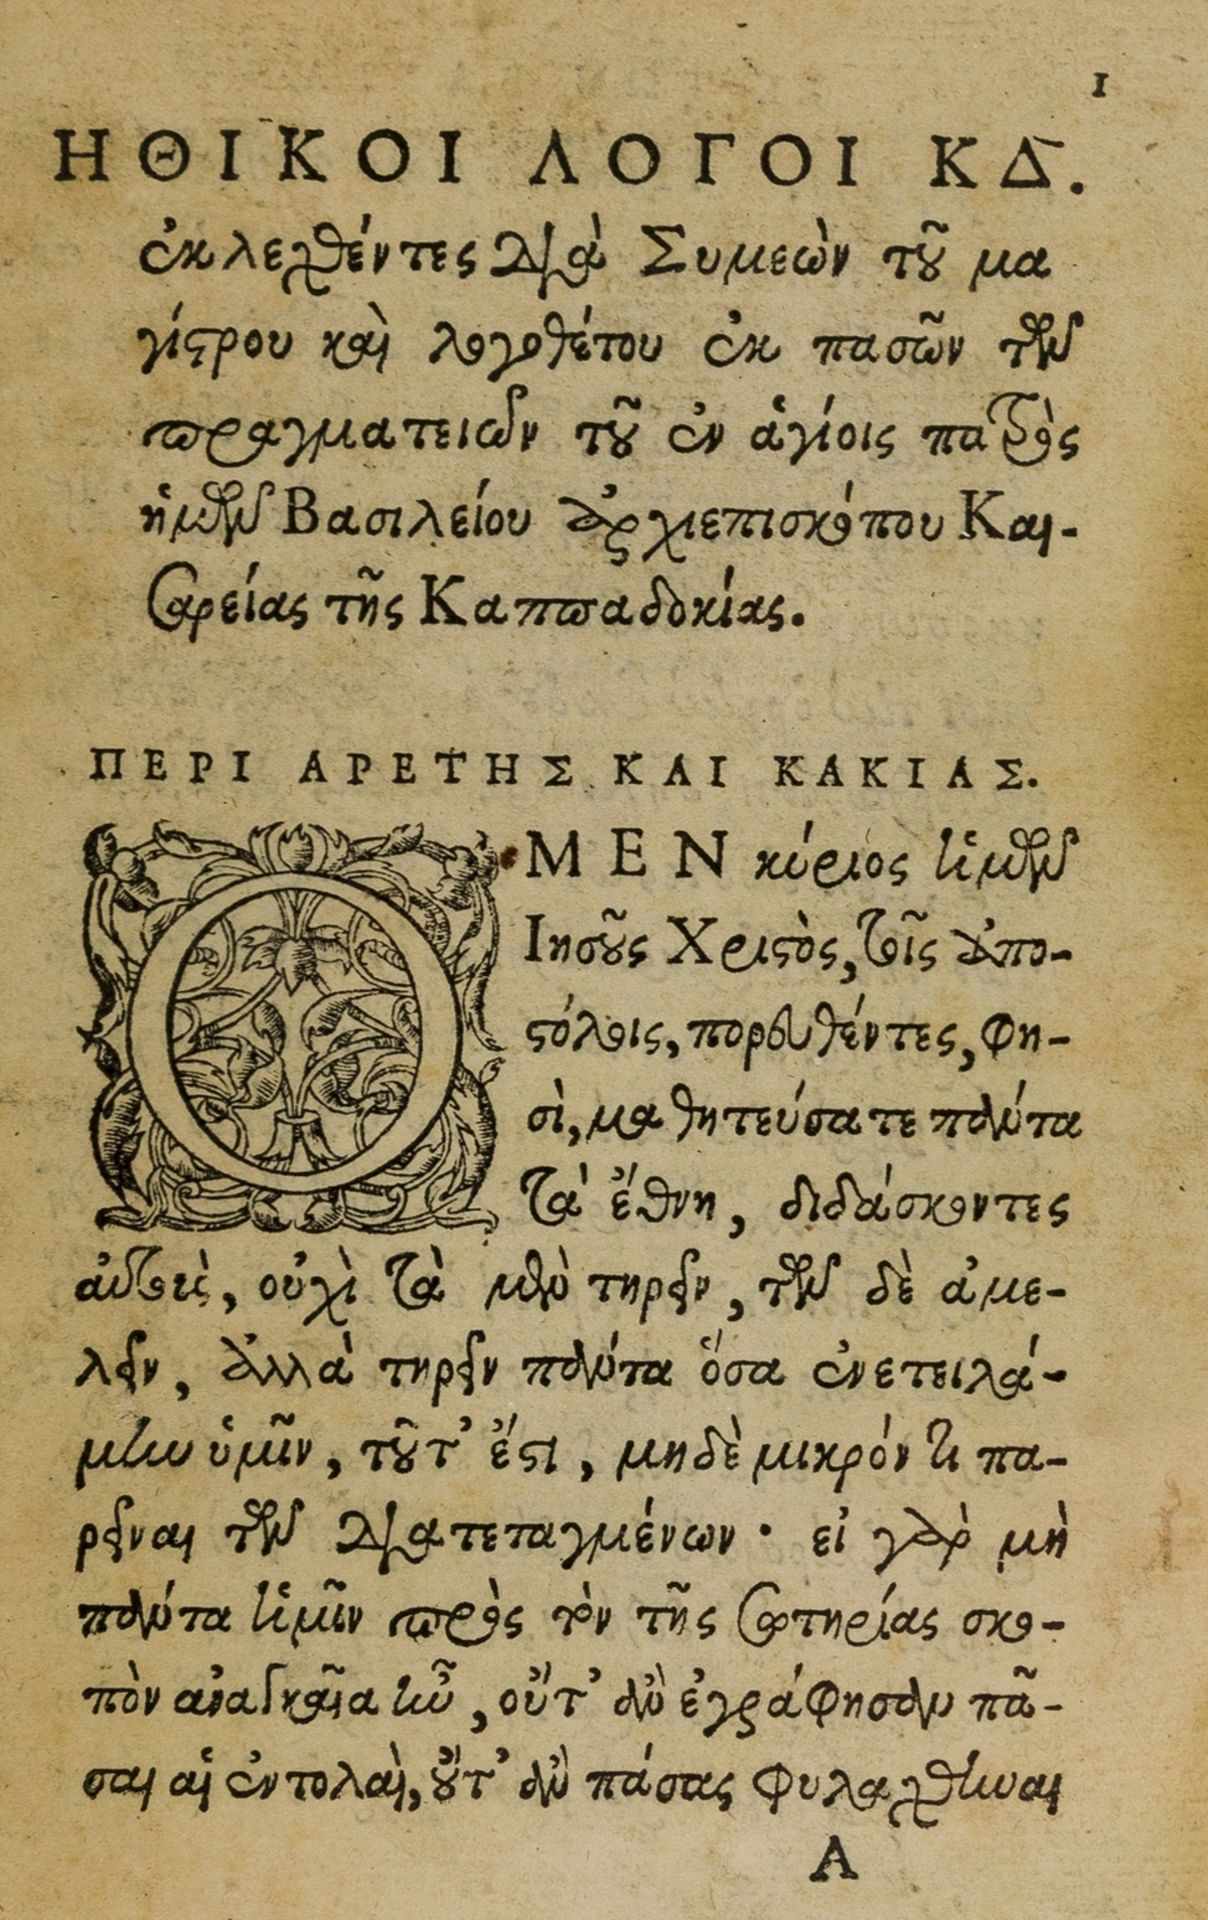 1
ΗΘΙΚΟΙ ΛΟΓΟΙ ΚΔ.
ἐκλεχθέντες διὰ Συμεὼν τοῦ μα
γίστρου καὶ λογοθέτου ἐκ πασῶν τῶν
πραγματειῶν τοῦ ἐν ἁγίοις πατρὸς
ἡμῶν Βασιλείου ἀρχιεπισκόπου Και-
σαρείας τῆς Καππαδοκίας.
ΠΕΡΙ ΑΡΕΤΗΣ ΚΑΙ ΚΑΚΙΑΣ.
Ο ΜΕΝ κύριος ἡμῶν
Ἰησοῦς Χριστὸς, τοῖς ἀπο-
στόλοις, πορευθέντες, φη-
σὶ, μαθητεύσατε πάντα
τὰ ἔθνη, διδάσκοντες
αὐτοὺς, οὐχὶ τὰ μὲν τηρεῖν, τῶν δὲ ἀμε-
λεῖν, ἀλλὰ τηρεῖν πάντα ὅσα ἐνετειλά-
μην ὑμῖν, τοῦτ’ ἔστι, μηδὲ μικρόν τι πα-
ρεῖναι τῶν διατεταγμένων· εἰ γὰρ μὴ
πάντα ἡμῖν πρὸς τὸν τῆς σωτηρίας σκο-
πὸν ἀναγκαῖα ἦν, οὔτ’ ἂν ἐγράφησαν πᾶ-
σαι αἱ ἐντολαὶ, οὔτ’ ἂν πάσας φυλαχθῆναι
A